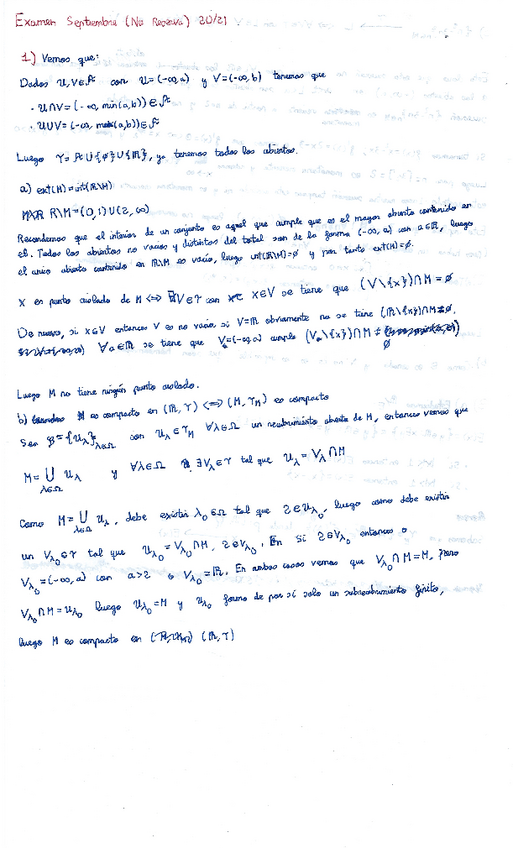 Examen Septiembre (No Reserva) 20/21
1) Vemos que:
Dados U,V∈𝒜 con U=(-∞,a) y V=(-∞,b) tenemos que
· U∩V=(-∞, min(a,b))∈𝒜
· U∪V=(-∞, max(a,b))∈𝒜
Luego τ=𝒜∪{∅}∪{ℝ}, ya tenemos todos los abiertos.
a) ext(M)=int(ℝ\M)
ℝ\M=(0,1)∪(2,∞)
Recordemos que el interior de un conjunto es aquel que cumple que es el mayor abierto contenido en
él. Todos los abiertos no vacíos y distintos del total son de la forma (-∞,a) con a∈ℝ, luego
el único abierto contenido en ℝ\M es vacío, luego int(ℝ\M)=∅ y por tanto ext(M)=∅.
X es punto aislado de M ⟺ ∃V∈τ con x∈V se tiene que (V\{x})∩M=∅
De nuevo, si x∈V entonces V es no vacío, si V=ℝ obviamente no se tiene (ℝ\{x})∩M≠∅.
∀a∈ℝ se tiene que V=(-∞,a) cumple (Vₐ\{x})∩M≠∅
Luego M no tiene ningún punto aislado.
b) M es compacto en (ℝ,τ) ⟺ (M,τ_M) es compacto
Sea β={U_λ}_{λ∈Ω} con U_λ∈τ_M ∀λ∈Ω un recubrimiento abierto de M, entonces vemos que
M=⋃_{λ∈Ω} U_λ y ∀λ∈Ω ∃V_λ∈τ tal que U_λ=V_λ∩M
Como M=⋃_{λ∈Ω} U_λ, debe existir λ₀∈Ω tal que 2∈U_λ₀, luego como debe existir
un V_λ₀∈τ tal que U_λ₀=V_λ₀∩M, 2∈V_λ₀. Si 2∈V_λ₀ entonces o
V_λ₀=(-∞,a) con a>2 o V_λ₀=ℝ. En ambos casos vemos que V_λ₀∩M=M, pero
V_λ₀∩M=U_λ₀ luego U_λ₀=M y U_λ₀ forma de por sí solo un subrecubrimiento finito,
luego M es compacto en (ℝ,τ)